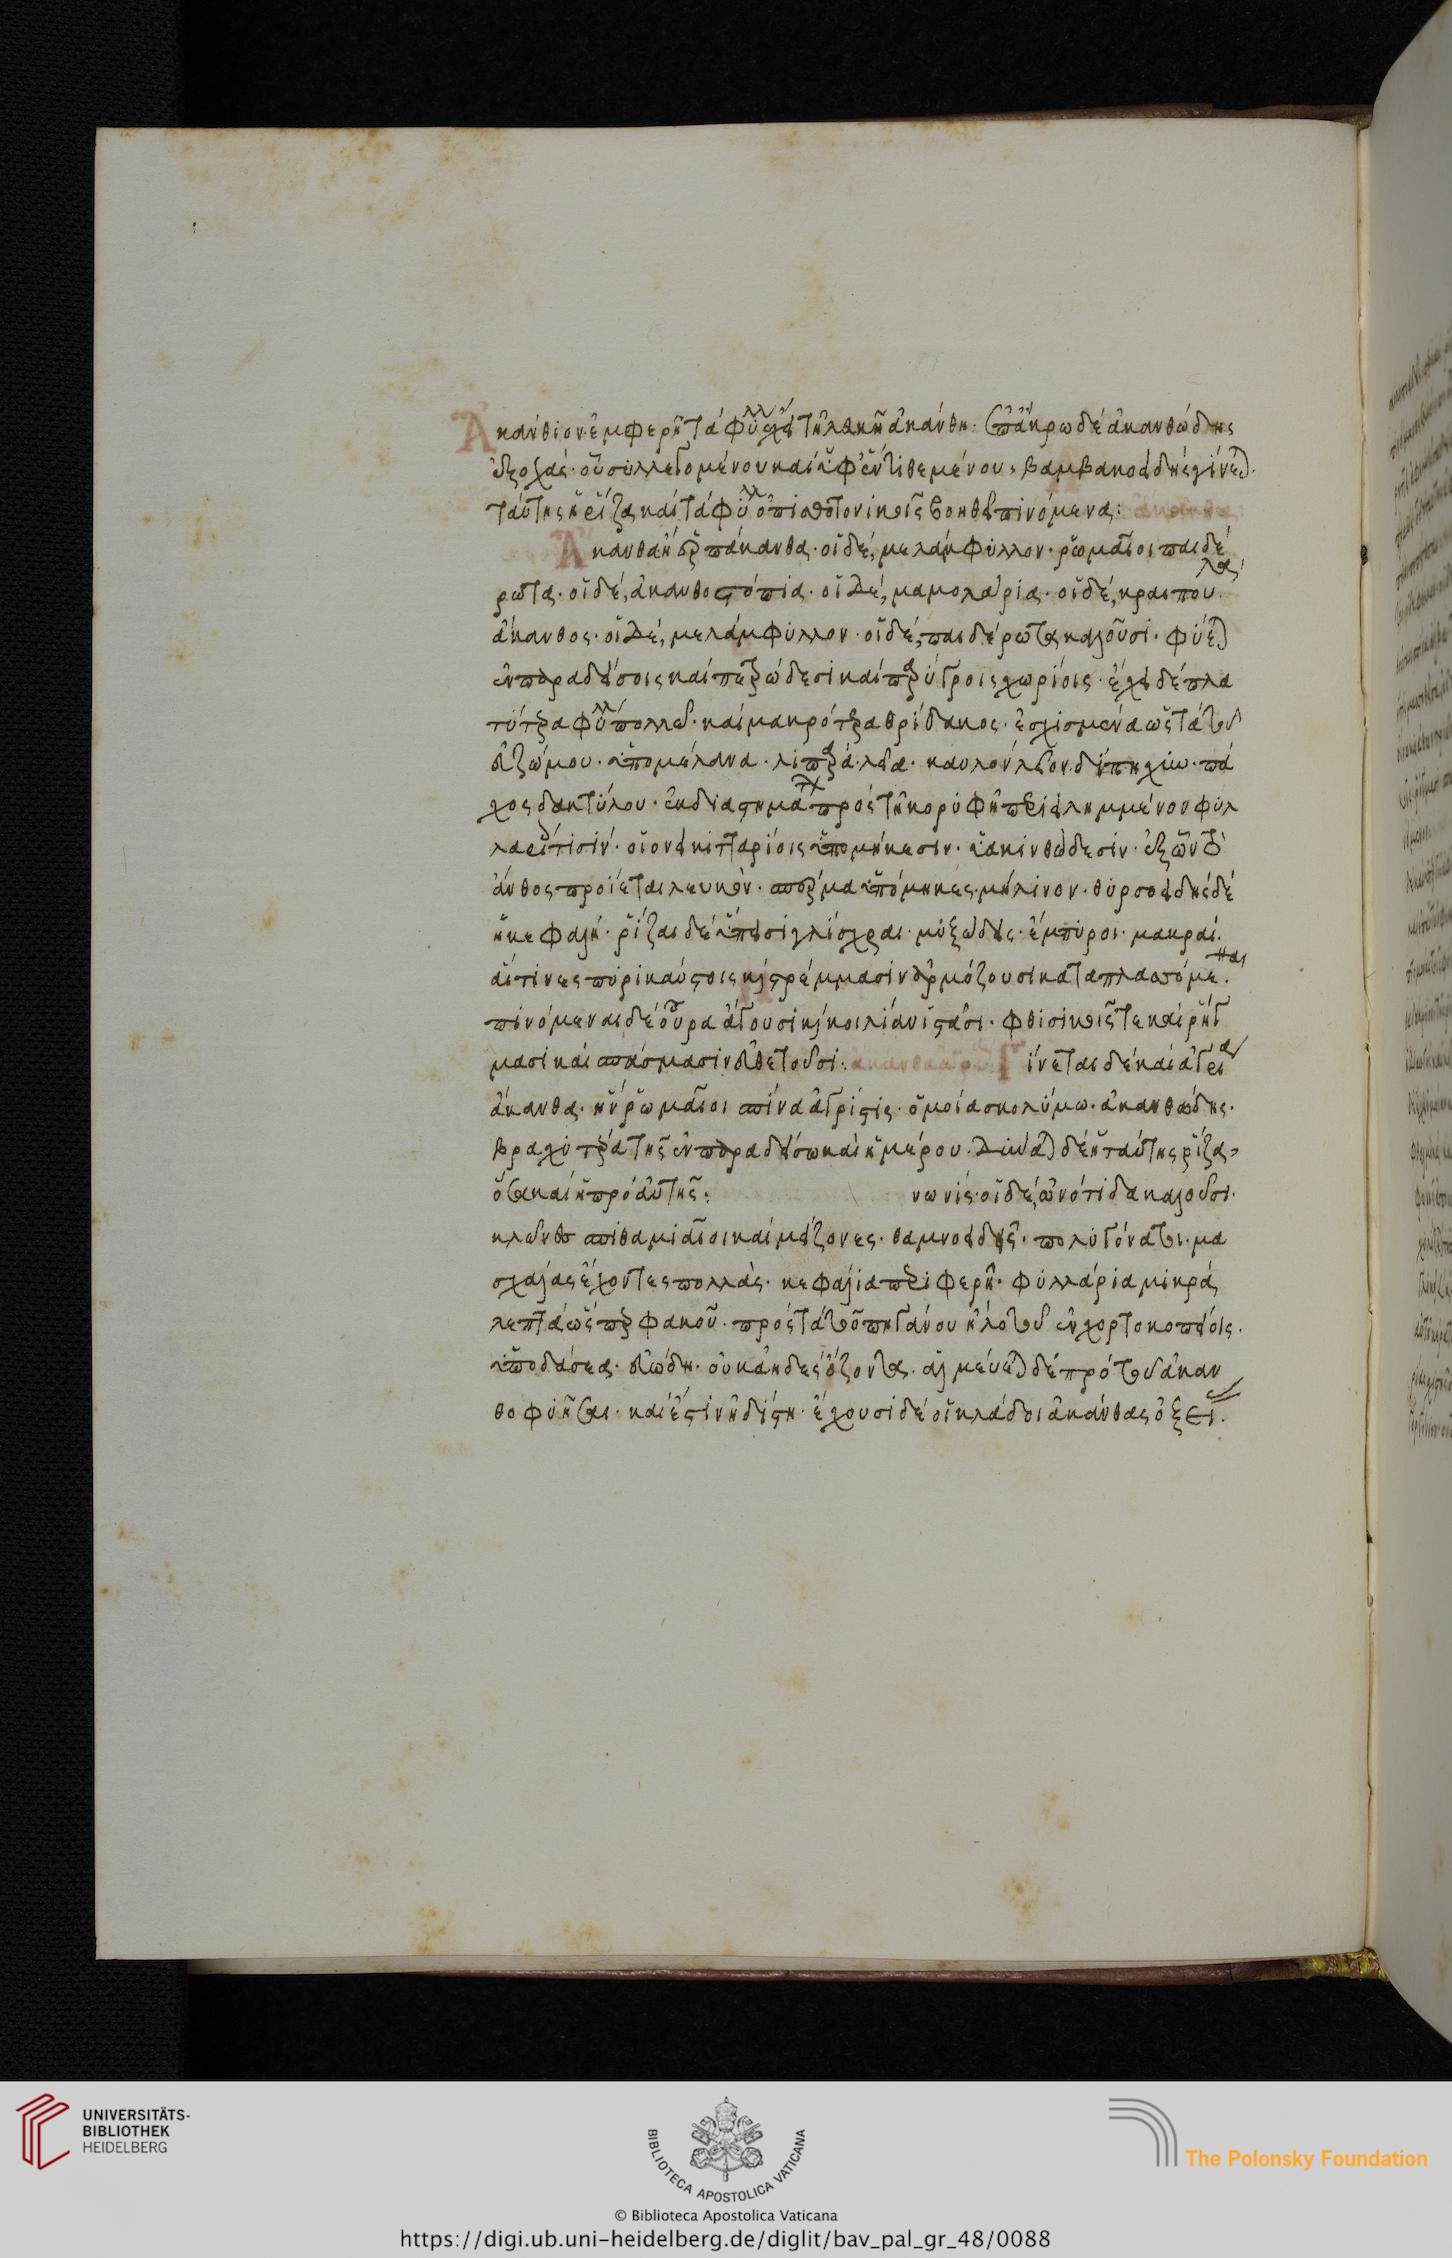 Ἀκάνθιον ἐμφερῆ τὰ φύλλα ἔχει τῆ λευκῆ ἀκάνθη· ἐπ ἄκρω δὲ ἀκανθώδεις
ὑπεροχάς· οὗ συλλεγομένου καὶ ὑφ ἐντιθεμένου, βαμβακοειδὴς γίνεται.
ταύτης ἡ ῥίζα καὶ τὰ φύλλα ὀπισθοτονικοῖς βοηθεῖ πινόμενα:
Ἄκανθα ἢ ἑρπάκανθα· οἱ δὲ, μελάμφυλλον· ῥωμαῖοι παιδέ
ρωτα· οἱ δὲ, ἄκανθος τόπια· οἱ δὲ, μαμολαρία· οἱ δὲ, κραιπουλας
ἄκανθος· οἱ δὲ, μελάμφυλλον· οἱ δὲ, παιδέρωτα καλοῦσι· φύεται
ἐν παραδείσοις καὶ πετρώδεσι καὶ παρύγροις χωρίοις· ἔχει δὲ πλα
τύτερα φύλλα πολλῶ· καὶ μακρότερα θρίδακος· ἐσχισμένα ὡς τὰ τοῦ
εὐζώμου· ὑπομέλανα· λιπαρά· λεῖα· καυλὸν λεῖον· δίπηχυν· πά
χος δακτύλου· ἐκ διαστημάτων πρὸς τῆ κορυφῆ περιειλημμένον φυλ
λαρίοις τισίν· οἱονεὶ κιτταρίοις ὑπομήκεσιν· ὑακινθώδεσιν· ἐξ ὧν τὸ
ἄνθος προίεται λευκόν· σπέρμα ὑπόμηκες· μήλινον· θυρσοειδὴς δὲ
ἡ κεφαλή· ῥίζαι δὲ ὕπεισι γλίσχραι· μυξώδεις· ἔμπυροι· μακραί.
αἵτινες πυρικαύστοις καὶ στρέμμασιν ἁρμόζουσι καταπλασσόμεναι.
πινόμεναι δὲ οὖρα ἄγουσι καὶ κοιλίαν ἱστᾶσι· φθισικοῖς τε καὶ ῥήγ
μασι καὶ σπάσμασιν εὐθετοῦσι. ἄκανθα ἀγρία Γίνεται δὲ καὶ ἀγρία
ἄκανθα· ἣν ῥωμαῖοι σπίνα ἀγρίστις· ὁμοία σκολύμω· ἀκανθώδης·
βραχυτέρα τῆς ἐν παραδείσω καὶ ἡμέρου. δύναται δὲ ἡ ταύτης ῥίζα,
ὅσα καὶ ἡ πρὸ αὐτῆς:
νωνίς· οἱ δὲ, ἀνότιδα καλοῦσι.
κλῶνες σπιθαμιαῖοι καὶ μείζονες· θαμνοειδεῖς· πολυγόνατοι· μα
σχάλας ἔχοντες πολλάς· κεφάλια περιφερῆ· φυλλάρια μικρά
λεπτὰ ὥσπερ φακοῦ· πρὸς τὰ τοῦ πηγάνου ἢ λωτοῦ ἐν χορτοκοπείοις.
ὑποδάσεα· εὐώδη· οὐκ ἀηδὲς ὄζοντα. ἁλμεύεται δὲ πρὸ τοῦ ἀκαν
θοφυῆσαι· καὶ ἔστιν ἡδίστη· ἔχουσι δὲ οἱ κλάδοι ἀκάνθας ὀξείας.
UNIVERSITÄTS-
BIBLIOTHEK
HEIDELBERG
BIBLIOTECA APOSTOLICA VATICANA
© Biblioteca Apostolica Vaticana
The Polonsky Foundation
https://digi.ub.uni-heidelberg.de/diglit/bav_pal_gr_48/0088